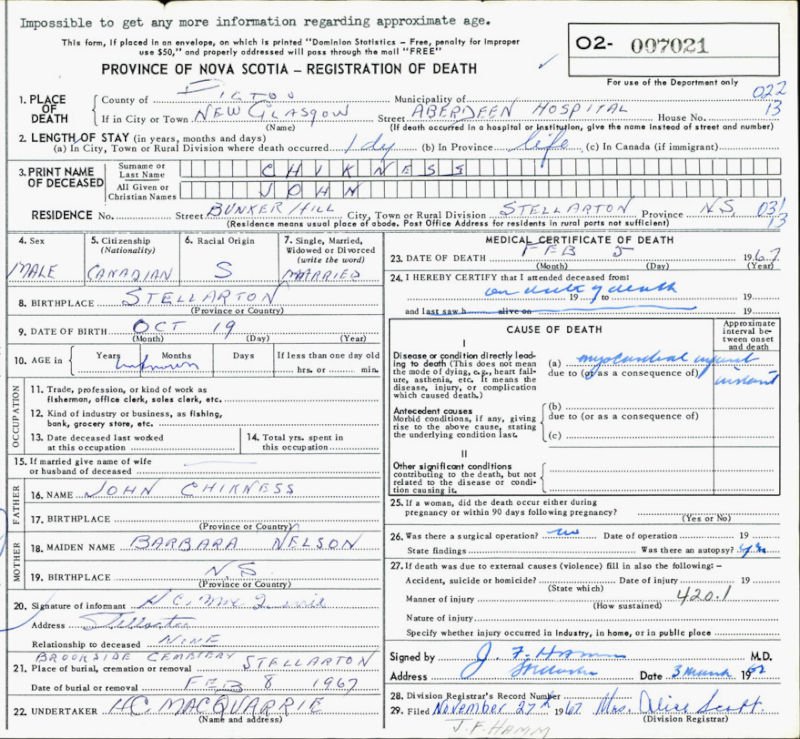 Impossible to get any more information regarding approximate age.
This form, if placed in an envelope, on which is printed "Dominion Statistics - Free, penalty for improper
use $50," and properly addressed will pass through the mail "FREE"
PROVINCE OF NOVA SCOTIA – REGISTRATION OF DEATH
O2- 007021
For use of the Department only
1. PLACE OF DEATH
County of PICTOU Municipality of 022
If in City or Town NEW GLASGOW Street ABERDEEN HOSPITAL House No. 13
(Name) (If death occurred in a hospital or institution, give the name instead of street and number)
2. LENGTH OF STAY (in years, months and days)
(a) In City, Town or Rural Division where death occurred 1 dy (b) In Province life (c) In Canada (if immigrant)
3. PRINT NAME OF DECEASED
Surname or Last Name CHIKNESS
All Given or Christian Names JOHN
RESIDENCE No. Street BUNKER HILL City, Town or Rural Division STELLARTON Province N.S. 031
13
(Residence means usual place of abode. Post Office Address for residents in rural ports not sufficient)
4. Sex MALE
5. Citizenship (Nationality) CANADIAN
6. Racial Origin S
7. Single, Married, Widowed or Divorced (write the word) MARRIED
8. BIRTHPLACE STELLARTON
(Province or Country)
9. DATE OF BIRTH OCT 19
(Month) (Day) (Year)
10. AGE in Years Months Days If less than one day old
unknown hrs. or min.
OCCUPATION
11. Trade, profession, or kind of work as
fishermon, office clerk, sales clerk, etc.
12. Kind of industry or business, as fishing,
bank, grocery store, etc.
13. Date deceased last worked
at this occupation
14. Total yrs. spent in
this occupation
15. If married give name of wife
or husband of deceased
FATHER
16. NAME JOHN CHIKNESS
17. BIRTHPLACE
(Province or Country)
MOTHER
18. MAIDEN NAME BARBARA NELSON
19. BIRTHPLACE N.S.
(Province or Country)
20. Signature of informant
Address Stellarton
Relationship to deceased NINE
BROOKSIDE CEMETARY
21. Place of burial, cremation or removal STELLARTON
Date of burial or removal FEB 8 1967
22. UNDERTAKER HC MACQUARRIE
(Name and address)
MEDICAL CERTIFICATE OF DEATH
23. DATE OF DEATH FEB 5 1967
(Month) (Day) (Year)
24. I HEREBY CERTIFY that I attended deceased from:
on date of death
19 to 19
and last saw h alive on 19
CAUSE OF DEATH
Approximate interval between onset and death
I
Disease or condition directly leading to death (This does not mean the mode of dying, e.g., heart failure, asthenia, etc. It means the disease, injury, or complication which caused death.)
(a) myocardial infarct
due to (or as a consequence of) instant
Antecedent causes
Morbid conditions, if any, giving rise to the above cause, stating the underlying condition last.
(b)
due to (or as a consequence of)
(c)
II
Other significant conditions
contributing to the death, but not related to the disease or condition causing it.
25. If a woman, did the death occur either during
pregnancy or within 90 days following pregnancy?
(Yes or No)
26. Was there a surgical operation? no Date of operation 19
State findings Was there an autopsy? yes
27. If death was due to external causes (violence) fill in also the following: –
Accident, suicide or homicide? Date of injury 19
(State which)
Manner of injury 420.1
(How sustained)
Nature of injury
Specify whether injury occurred in industry, in home, or in public place
Signed by J. F. Hamm M.D.
Address Date 3 March 1967
28. Division Registrar's Record Number
29. Filed November 27th 1967 Mrs. Alice Scott
(Division Registrar)
J.F. HAMM